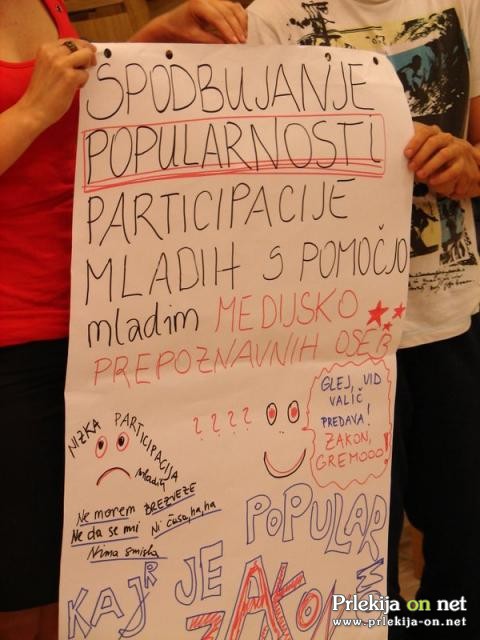 SPODBUJANJE
POPULARNOSTI
PARTICIPACIJE
MLADIH S POMOČJO
mladim MEDIJSKO
PREPOZNAVNIH OSEB
NIZKA PARTICIPACIJA
mladih
? ? ? ?
GLEJ, VID
VALIČ
PREDAVA!
ZAKON,
GREMOOO!
Ne morem BREZVEZE
Ne da se mi Ni časa, ha, ha
Nima smisla
KAJ JE POPULARNO
ZAKON
Prlekija on net
www.prlekija-on.net